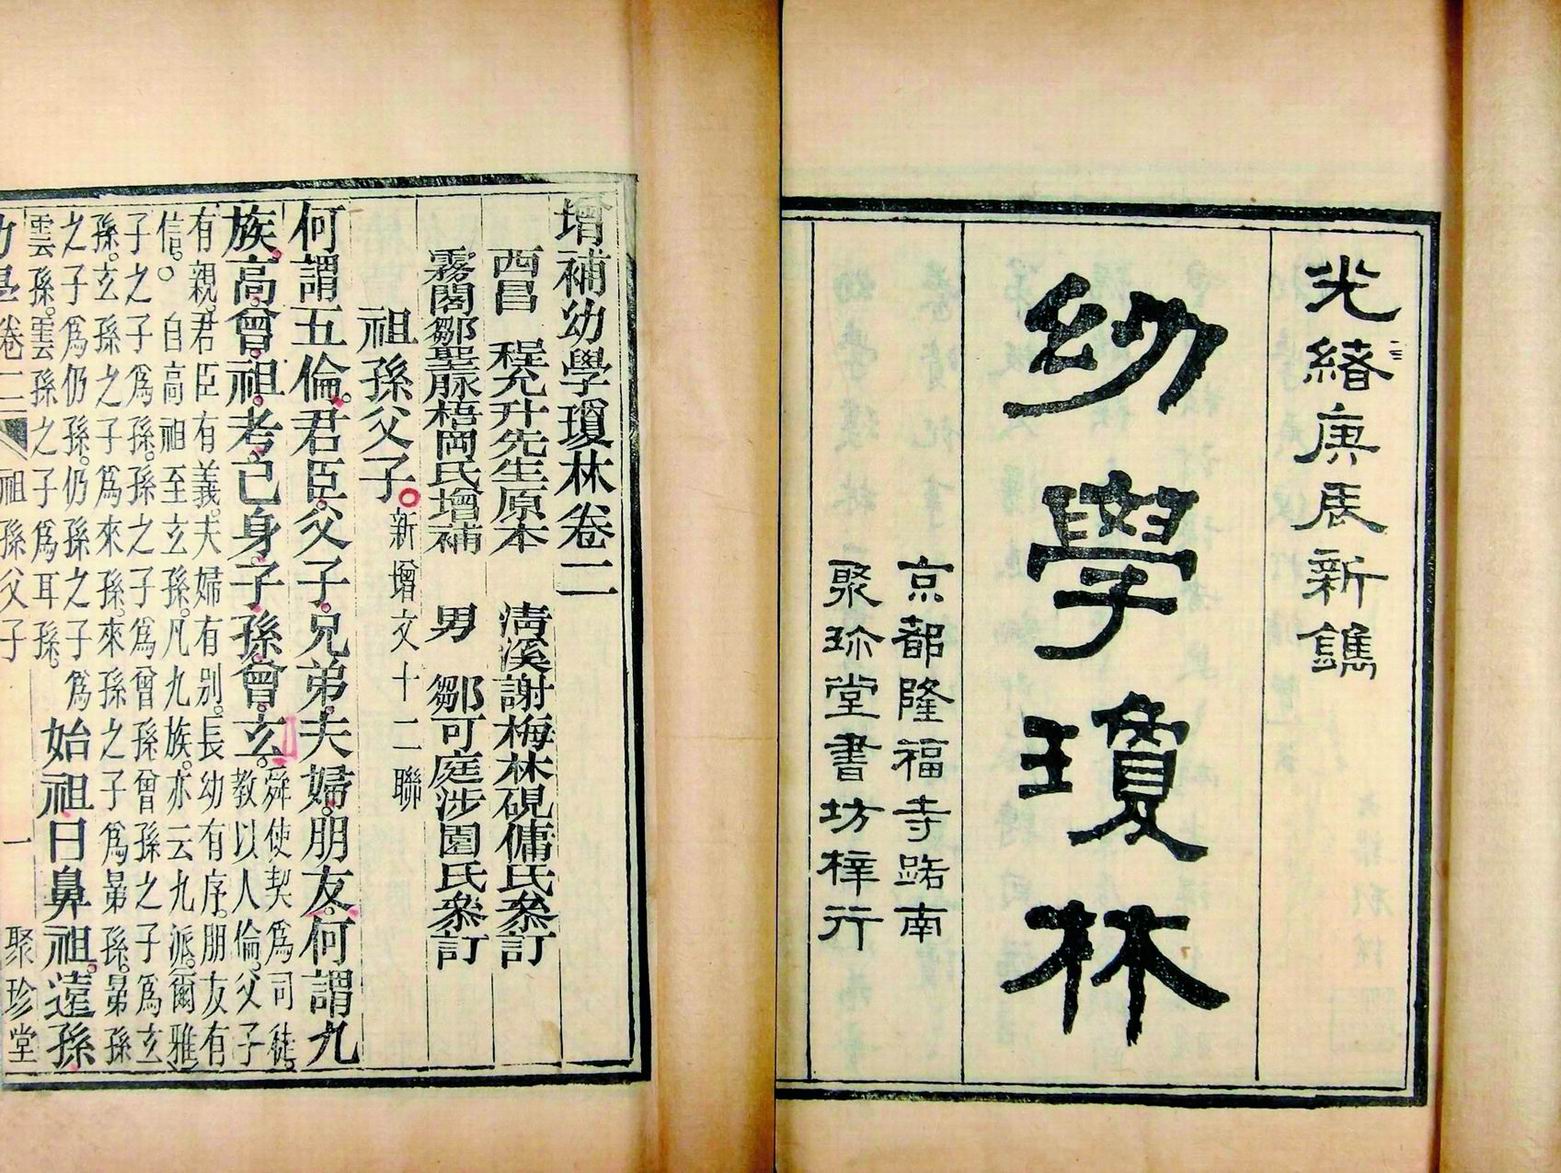 光緒庚辰新鐫
幼學瓊林
京都隆福寺路南
聚珍堂書坊梓行
增補幼學瓊林卷二
西昌 程允升先生原本 淸溪謝梅林硯傭氏叅訂
霧閣鄒聖脉梧岡氏增補 男 鄒可庭涉園氏叅訂
祖孫父子。新增文十二聯
何謂五倫。君臣。父子。兄弟。夫婦。朋友。何謂九
族。高。曾。祖。考。己身。子。孫。曾。玄。舜使契爲司徒。
教以人倫。父子
有親。君臣有義。夫婦有別。長幼有序。朋友有
信。○自高祖至玄孫。凡九族。亦云九派。爾雅
子之子爲孫。孫之子爲曾孫。曾孫之子爲玄
孫。玄孫之子爲來孫。來孫之子爲晜孫。晜孫
之子爲仍孫。仍孫之子爲
雲孫。雲孫之子爲耳孫。
始祖曰鼻祖。遠孫
幼學卷二 祖孫父子 一 聚珍堂